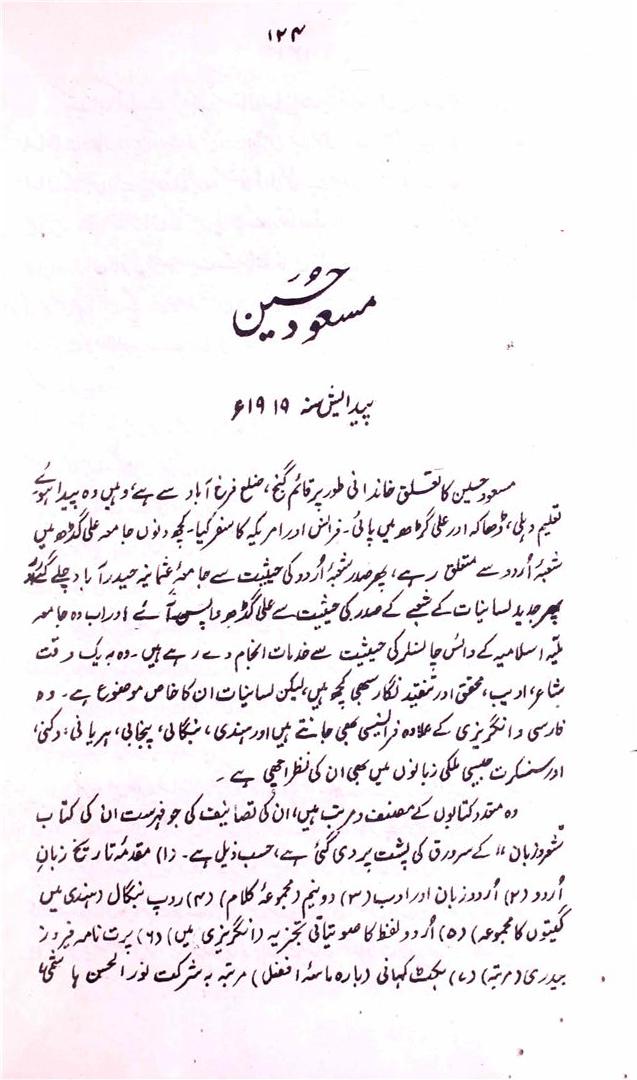 ۱۲۴
مسعود حسین
پیدائش سنہ ۱۹۱۹ء
مسعود حسین کا تعلق خاندانی طور پر قائم گنج، ضلع فرخ آباد سے ہے، وہیں وہ پیدا ہوئے
تعلیم دہلی، ڈھاکہ اور علی گڑھ میں پائی۔ فرانس اور امریکہ کا سفر کیا۔ کچھ دنوں جامعہ علی گڑھ میں
شعبۂ اُردو سے متعلق رہے، پھر صدر شعبۂ اُردو کی حیثیت سے جامعۂ عثمانیہ حیدر آباد چلے گئے اور
پھر جدید لسانیات کے شعبے کے صدر کی حیثیت سے علی گڑھ واپس آئے اور اب وہ جامعہ
ملیہ اسلامیہ کے وائس چانسلر کی حیثیت سے خدمات انجام دے رہے ہیں۔ وہ بہ یک وقت
شاعر، ادیب، محقق اور تنقید نگار سبھی کچھ ہیں، لیکن لسانیات ان کا خاص موضوع ہے۔ وہ
فارسی و انگریزی کے علاوہ فرانسیسی بھی جانتے ہیں اور ہندی، بنگالی، پنجابی، ہریانی، دکنی،
اور سنسکرت جیسی ملکی زبانوں میں بھی ان کی نظر اچھی ہے۔
وہ متعدد کتابوں کے مصنف و مرتب ہیں، ان کی تصانیف کی جو فہرست ان کی کتاب
شعر و زبان" کے سرورق کی پشت پر دی گئی ہے، حسب ذیل ہے۔ (۱) مقدمۂ تاریخ زبانِ
اُردو (۲) اُردو زبان اور ادب (۳) دونیم (مجموعۂ کلام) (۴) روپ بنگال (ہندی میں
گیتوں کا مجموعہ) (۵) اُردو لفظ کا صوتیاتی تجزیہ (انگریزی میں) (۶) پرت نامہ فیروز
بیدری (مرتبہ) (۷) بکٹ کہانی (بارہ ماسۂ افضل) مرتبہ بہ شرکت نور الحسن ہاشمی،